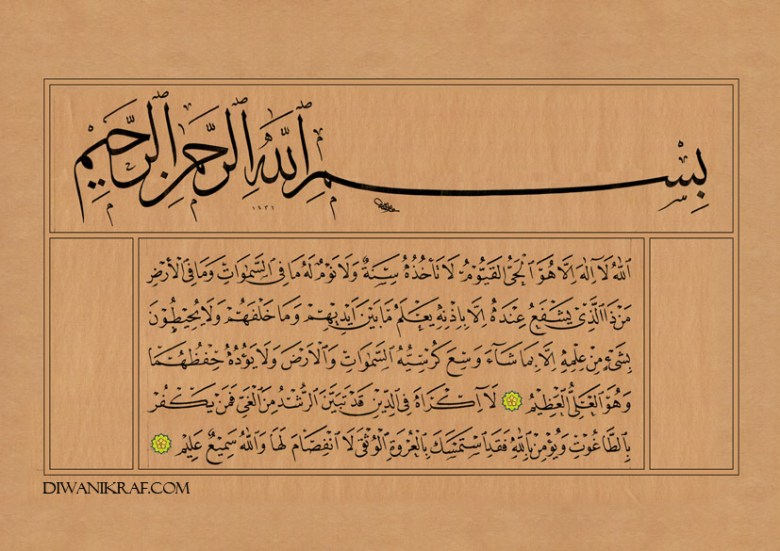 بِسْمِ اللَّهِ الرَّحْمَنِ الرَّحِيمِ
١٤٣١
اَللّٰهُ لَا اِلٰهَ اِلَّا هُوَ اَلْحَيُّ الْقَيُّومُ لَا تَأْخُذُهُ سِنَةٌ وَلَا نَوْمٌ لَهُ مَا فِي السَّمٰوَاتِ وَمَا فِي الْاَرْضِ
مَنْ ذَا الَّذِي يَشْفَعُ عِنْدَهُ اِلَّا بِاِذْنِهِ يَعْلَمُ مَا بَيْنَ اَيْدِيهِمْ وَمَا خَلْفَهُمْ وَلَا يُحِيطُونَ
بِشَيْءٍ مِنْ عِلْمِهِ اِلَّا بِمَا شَاءَ وَسِعَ كُرْسِيُّهُ السَّمٰوَاتِ وَالْاَرْضَ وَلَا يَؤُدُهُ حِفْظُهُمَا
وَهُوَ الْعَلِيُّ الْعَظِيمُ لَا اِكْرَاهَ فِي الدِّينِ قَدْ تَبَيَّنَ الرُّشْدُ مِنَ الْغَيِّ فَمَنْ يَكْفُرْ
بِالطَّاغُوتِ وَيُؤْمِنْ بِاللّٰهِ فَقَدِ اسْتَمْسَكَ بِالْعُرْوَةِ الْوُثْقٰى لَا انْفِصَامَ لَهَا وَاللّٰهُ سَمِيعٌ عَلِيمٌ
DIWANIKRAF.COM